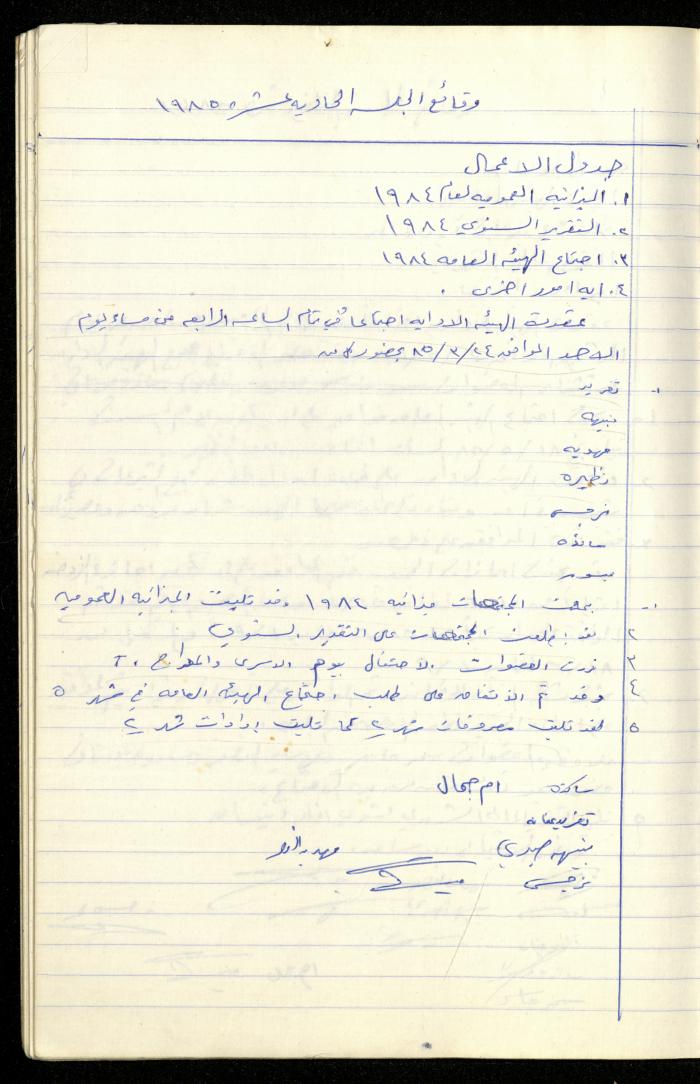 وقائع الجلسه الحاديه عشره ١٩٨٥
جدول الاعمال
١. الميزانيه العموميه لعام ١٩٨٤
٢. التقرير السنوي ١٩٨٤
٣. اجتماع الهيئه العامه ١٩٨٤
٤. ايه امور اخرى .
عقدت الهيئه الادرايه اجتماعا في تمام الساعه الرابعه من مساء يوم
الاحد الموافق ٨٥/٣/٢٤ بحضور كل من
تغريد
نبيهه
مهديه
نظيره
نرجس
سائده
ميسور
١- بحثت المجتمعات ميزانيه ١٩٨٤ وقد تليت الميزانيه العموميه
٢ لقد اطلعت المجتمعات على التقرير السنوي
٣ قررت العضوات الاحتفال بيوم الاسرى
٤ وقد تم الاتفاق على طلب اجتماع الهيئه العامه في شهر ٥
٥ لقد تليت مصروفات شهر ٢ كما تليت إرادات شهر ٢
ام جمال
نبيهه صبري
نرجس